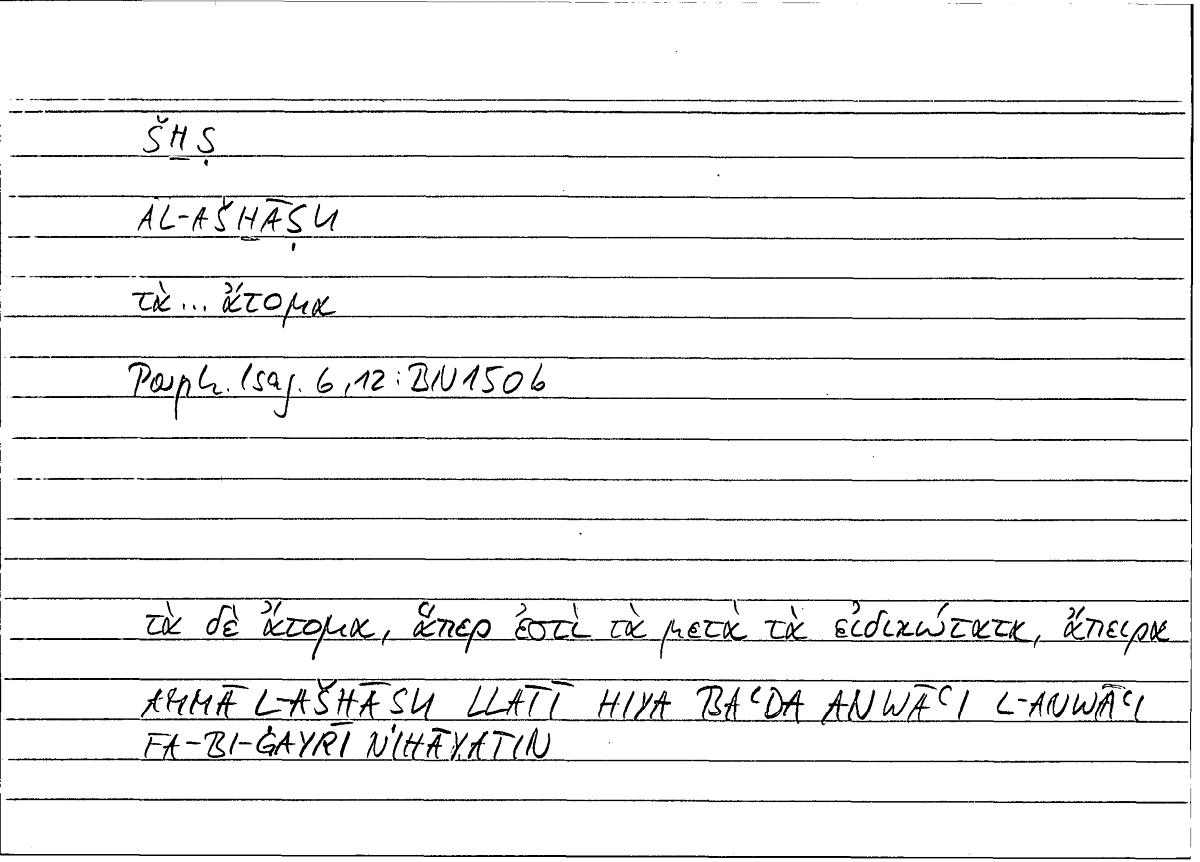 ŠḪṢ
AL-AŠḪĀṢU
τὰ... ἄτομα
Porph. Isag. 6,12: BN150b
τὰ δὲ ἄτομα, ἅπερ ἐστὶ τὰ μετὰ τὰ εἰδικώτατα, ἄπειρα
AMMĀ L-AŠHĀSU LLATĪ HIYA BAʿDA ANWĀʿI L-ANWĀʿI
FA-BI-ĠAYRI NIHĀYATIN